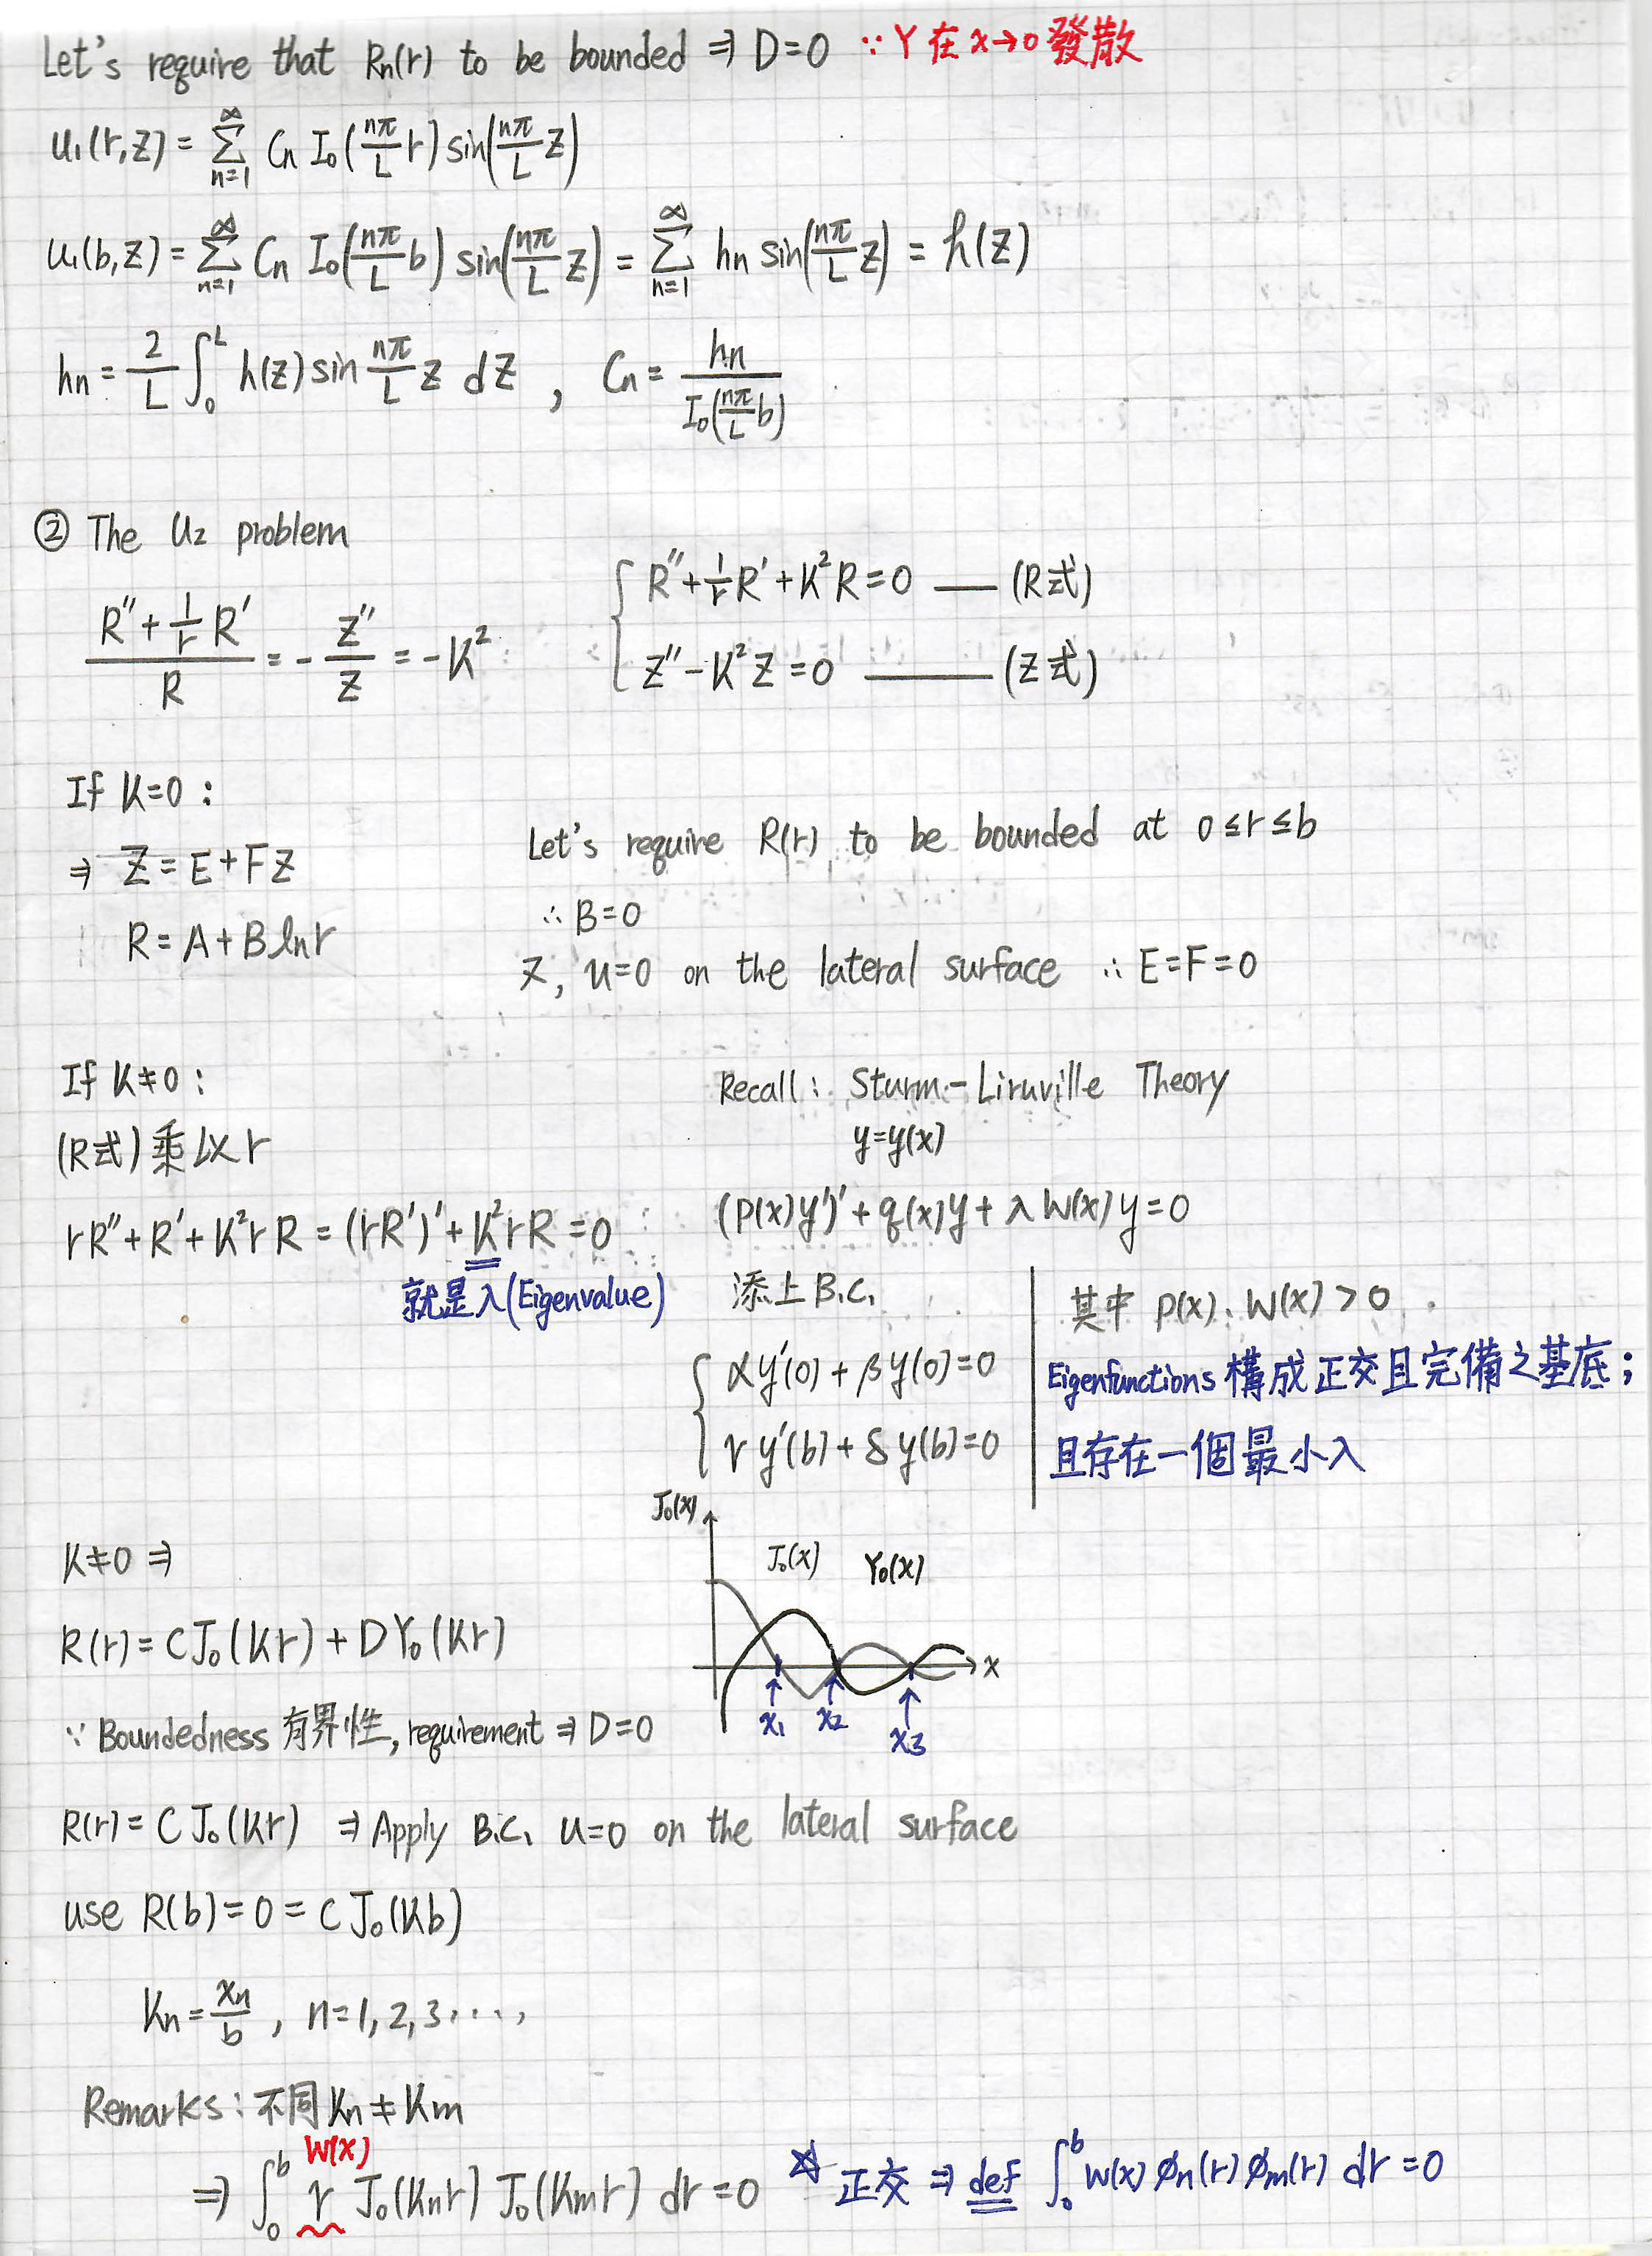 Let's require that Rn(r) to be bounded ⇒ D=0 ∵ Y 在 x→0 發散
u₁(r,z) = ∑_{n=1}^{∞} Cn I₀(nπ/L r) sin(nπ/L z)
u₁(b,z) = ∑_{n=1}^{∞} Cn I₀(nπ/L b) sin(nπ/L z) = ∑_{n=1}^{∞} hn sin(nπ/L z) = h(z)
hn = 2/L ∫₀^L h(z) sin nπ/L z dz , Cn = hn / I₀(nπ/L b)
② The U₂ problem
(R″ + 1/r R′)/R = - Z″/Z = -K²
{ R″ + 1/r R′ + K²R = 0 — (R式)
Z″ - K²Z = 0 — (Z式)
If K=0 :
⇒ Z = E + Fz
R = A + B ln r
Let's require R(r) to be bounded at 0≤r≤b
∴ B=0
Z, u=0 on the lateral surface ∴ E=F=0
If K≠0 :
(R式) 乘以 r
rR″ + R′ + K²rR = (rR′)′ + K²rR = 0
就是λ(Eigenvalue)
Recall : Sturm-Liruville Theory
y=y(x)
(P(x)y′)′ + q(x)y + λW(x)y = 0
添上 B.C.
{ αy′(0) + βy(0) = 0
γy′(b) + δy(b) = 0
其中 p(x)、W(x) > 0
Eigenfunctions 構成正交且完備之基底;
且存在一個最小λ
J₀(x)
J₀(x) Y₀(x)
x
x₁ x₂ x₃
K≠0 ⇒
R(r) = CJ₀(Kr) + DY₀(Kr)
∵ Boundedness 有界性, requirement ⇒ D=0
R(r) = CJ₀(Kr) ⇒ Apply B.C. u=0 on the lateral surface
use R(b) = 0 = CJ₀(Kb)
Kn = xn/b , n=1,2,3····,
Remarks : 不同 Kn ≠ Km
W(x)
⇒ ∫₀^b r J₀(Knr) J₀(Kmr) dr = 0 ☆ 正交 ⇒ def ∫₀^b W(x) ϕn(r) ϕm(r) dr = 0